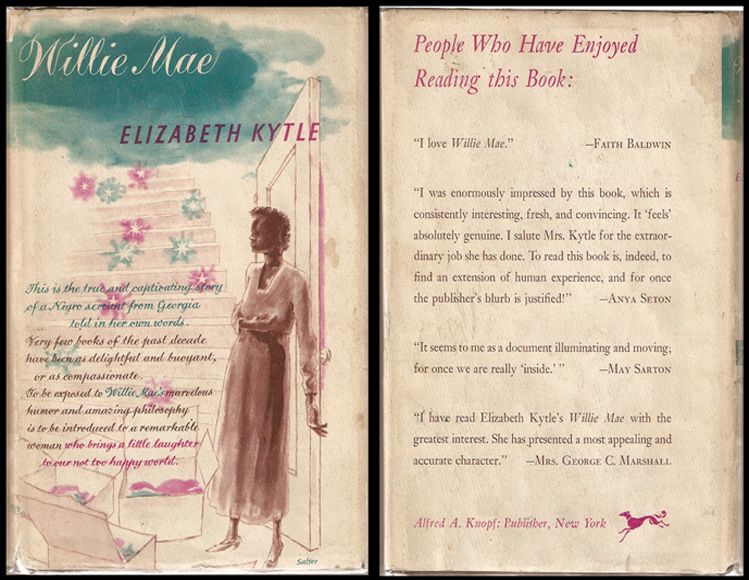 Willie Mae
ELIZABETH KYTLE
This is the true and captivating story
of a Negro servant from Georgia
told in her own words.
Very few books of the past decade
have been as delightful and buoyant,
or as compassionate.
To be exposed to Willie Mae's marvelous
humor and amazing philosophy
is to be introduced to a remarkable
woman who brings a little laughter
to our not too happy world.
Salter
People Who Have Enjoyed
Reading this Book:
“I love Willie Mae.” —FAITH BALDWIN
“I was enormously impressed by this book, which is
consistently interesting, fresh, and convincing. It ‘feels’
absolutely genuine. I salute Mrs. Kytle for the extraor-
dinary job she has done. To read this book is, indeed, to
find an extension of human experience, and for once
the publisher’s blurb is justified!” —ANYA SETON
“It seems to me as a document illuminating and moving;
for once we are really ‘inside.’ ” —MAY SARTON
“I have read Elizabeth Kytle’s Willie Mae with the
greatest interest. She has presented a most appealing and
accurate character.” —MRS. GEORGE C. MARSHALL
Alfred A. Knopf: Publisher, New York